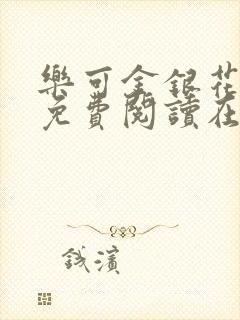 樂可金銀花
免費閱讀在
錢濱